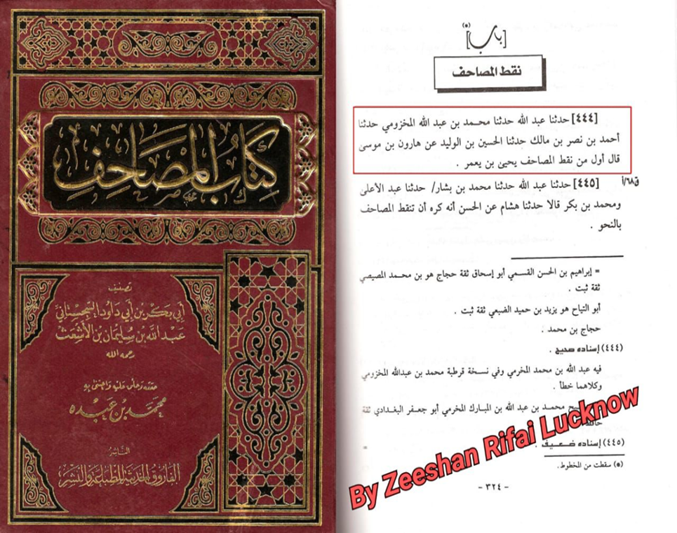 كتاب المصاحف
تصنيف
أبي بكر بن أبي داود السجستاني
عبد الله بن سليمان بن الأشعث
رحمه الله
محمد بن عبده
الناشر
الفاروق الحديثة للطباعة والنشر
[باب] (٥)
نقط المصاحف
[٤٤٤] حدثنا عبد الله حدثنا محمد بن عبد الله المخزومي حدثنا
أحمد بن نصر بن مالك حدثنا الحسين بن الوليد عن هارون بن موسى
قال أول من نقط المصاحف يحيى بن يعمر .
[٤٤٥] حدثنا عبد الله حدثنا محمد بن بشار/ حدثنا عبد الأعلى
ق٦٨/أ
ومحمد بن بكر قالا حدثنا هشام عن الحسن أنه كره أن تنقط المصاحف
بالنحو .
= إبراهيم بن الحسن القسمي أبو إسحاق ثقة حجاج هو بن محمد المصيصي
ثقة ثبت .
أبو التياح هو يزيد بن حميد الضبعي ثقة ثبت .
حجاج بن محمد .
(٤٤٤) إسناده صحيح .
فيه عبد الله بن محمد المخرمي وفي نسخة قرطبة محمد بن عبدالله المخزومي
وكلاهما خطأ .
محمد بن عبد الله بن المبارك المخرمي أبو جعفر البغدادي ثقة
(٤٤٥) إسناده ضعيف
(٥) سقطت من المخطوط .
- ٣٢٤ -
By Zeeshan Rifai Lucknow